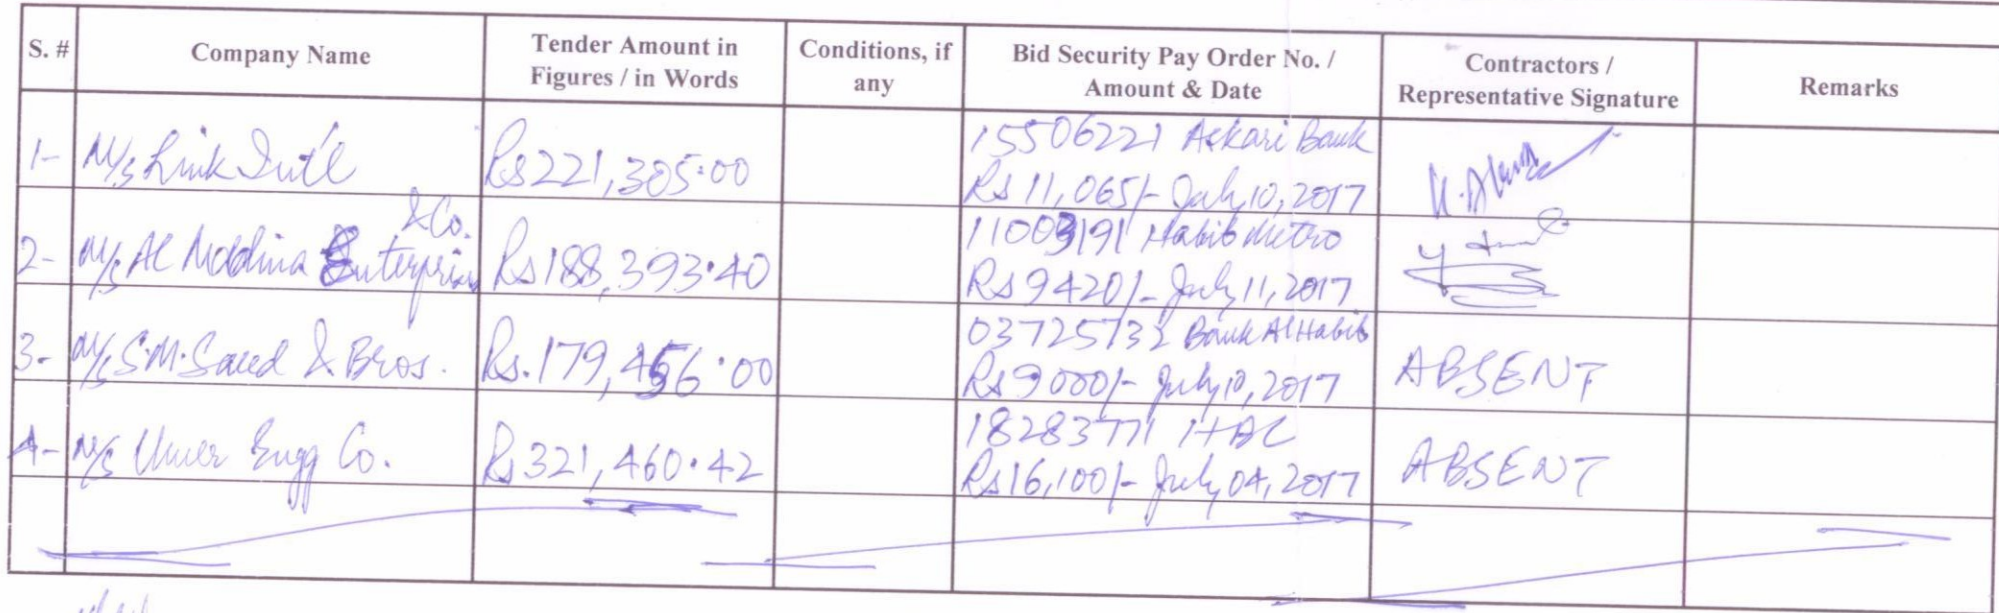 S. #
Company Name
Tender Amount in
Figures / in Words
Conditions, if
any
Bid Security Pay Order No. /
Amount & Date
Contractors /
Representative Signature
Remarks
1-
M/s Link Int'l
Rs 221,305.00
15506221 Askari Bank
Rs 11,065/- July 10, 2017
2-
& Co.
M/s Al Madina Enterprise
Rs 188,393.40
11003191 Habib Metro
Rs 9420/- July 11, 2017
3-
M/s S.M. Saeed & Bros.
Rs. 179,456.00
03725732 Bank Al Habib
Rs 9000/- July 10, 2017
ABSENT
4-
M/s Umer Engg Co.
Rs 321,460.42
18283771
Rs 16,100/- July 04, 2017
ABSENT